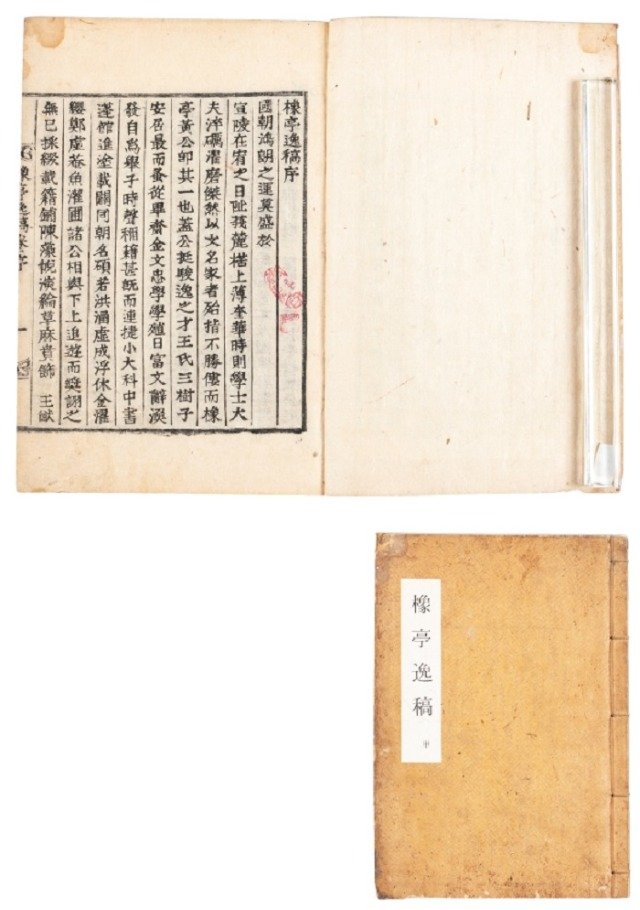 橡亭逸稿序
國朝鴻朗之運莫盛於
宣陵在宥之日莪麓楛上薄奎華時則學士大
夫淬礪濯磨傑然以文名家者殆指不勝僂而橡
亭黃公卽其一也蓋公挺駿逸之才王氏三樹子
安居最而蚤從畢齋金文忠學學殖日富文辭渙
發自爲擧子時聲稱籍甚旣而連捷小大科中書
蓬館進塗載闢同朝名碩若洪涵虛成浮休金濯
纓鄭虛菴魚灌圃諸公相與下上追遊而詡之
無已採綴載籍鋪陳藻綸草麻賁飾 王猷
橡亭逸稿序
一
橡亭逸稿